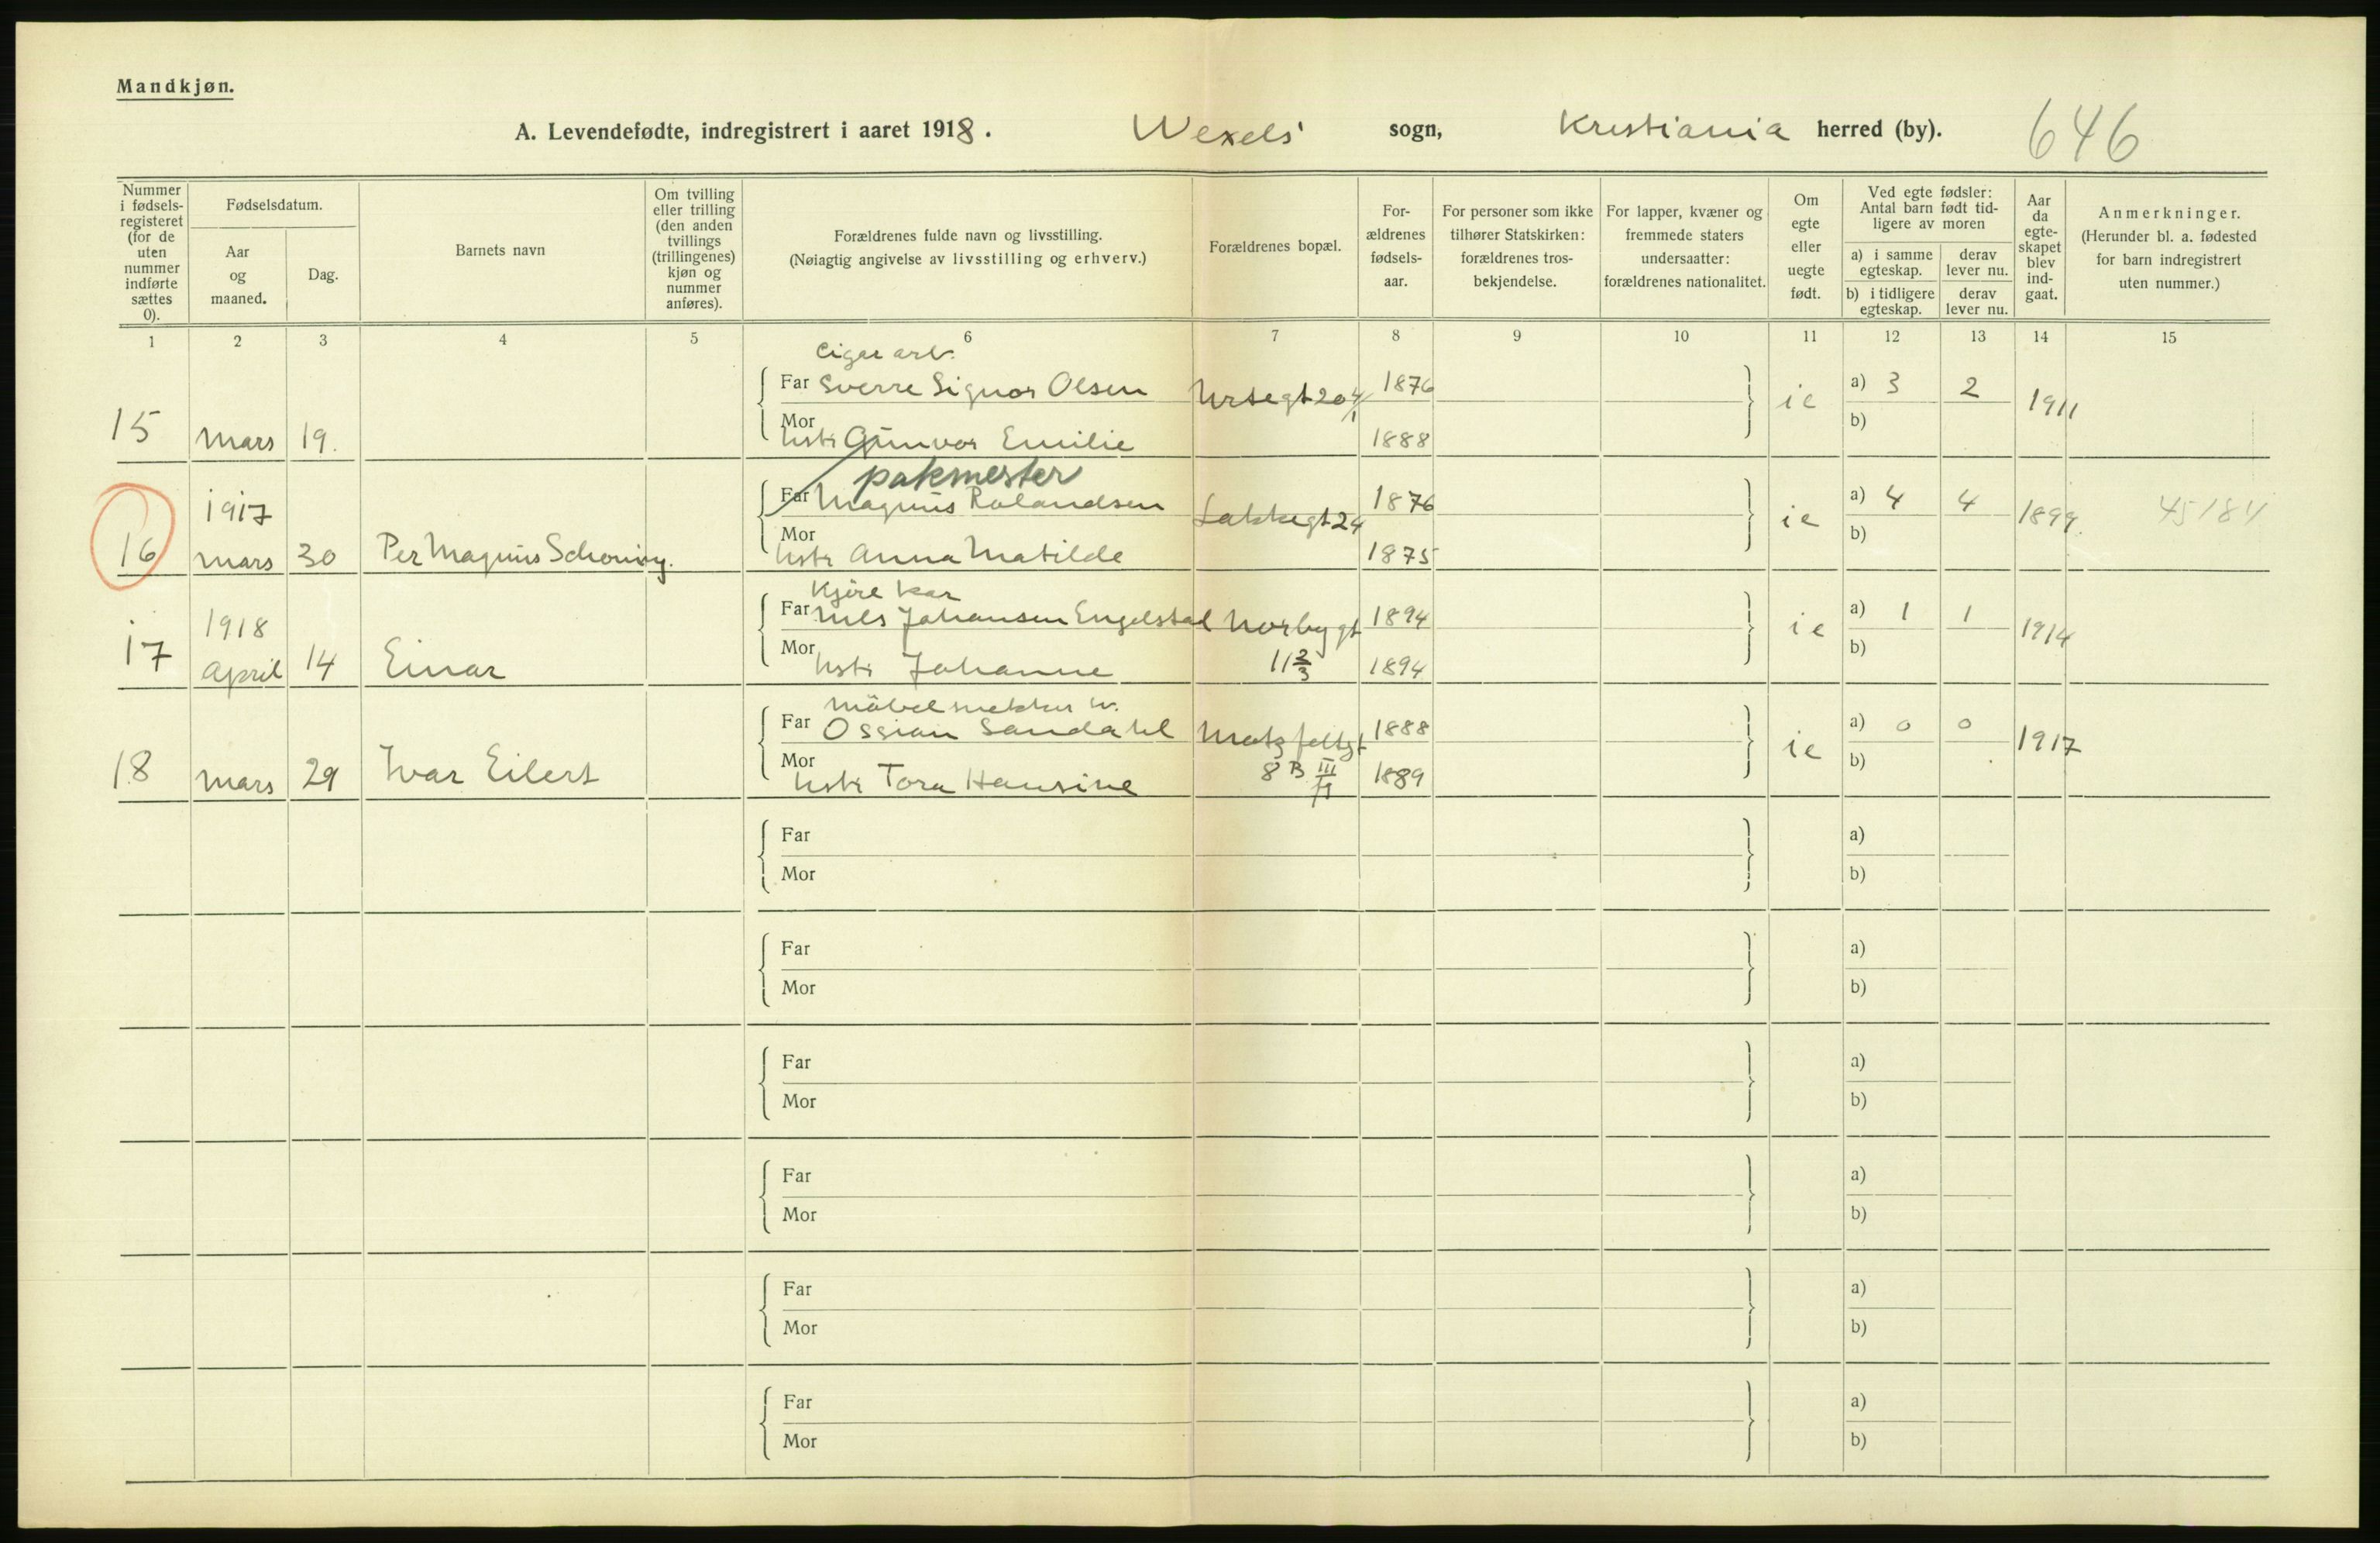 Mandkjøn.
A. Levendefødte, indregistrert i aaret 1918. Wexels' sogn, Kristiania herred (by). 646
Nummer i fødsels-registeret (for de uten nummer indførte sættes 0).
Fødselsdatum.
Aar og maaned.
Dag.
Barnets navn
Om tvilling eller trilling (den anden tvillings (trillingenes) kjøn og nummer anføres).
Forældrenes fulde navn og livsstilling.
(Nøiagtig angivelse av livsstilling og erhverv.)
Forældrenes bopæl.
For-ældrenes fødsels-aar.
For personer som ikke tilhører Statskirken: forældrenes tros-bekjendelse.
For lapper, kvæner og fremmede staters undersaatter: forældrenes nationalitet.
Om egte eller uegte født.
Ved egte fødsler: Antal barn født tid-ligere av moren
a) i samme egteskap.
derav lever nu.
b) i tidligere egteskap.
derav lever nu.
Aar da egte-skapet blev ind-gaat.
Anmerkninger.
(Herunder bl. a. fødested for barn indregistrert uten nummer.)
1 2 3 4 5 6 7 8 9 10 11 12 13 14 15
Cigar arb.
Far Sverre Signor Olsen Urtegt 20 4/1 1876 a) 3 2
15 mars 19. Mor hstr Gunvor Emilie 1888 ie b) 1911
pakmester
1917 Far Magnus Rolandsen Lakkegt 24 1876 a) 4 4 45184
16 mars 30 Per Magnus Schøning. Mor hstr Anna Matilde 1875 ie b) 1899.
Kjøre kar
1918 Far Nils Johansen Engelstad Norbygt 1894 a) 1 1
17 april 14 Einar Mor hstr Johanne 11 2/3 1894 ie b) 1914
Møbelsnekker sv.
Far Ossian Sandahl 1888 a) 0 0
18 mars 29 Ivar Eilert Mor hstr Tora Hansine 8 B III 1889 ie b) 1917
Far a)
Mor b)
Far a)
Mor b)
Far a)
Mor b)
Far a)
Mor b)
Far a)
Mor b)
Far a)
Mor b)